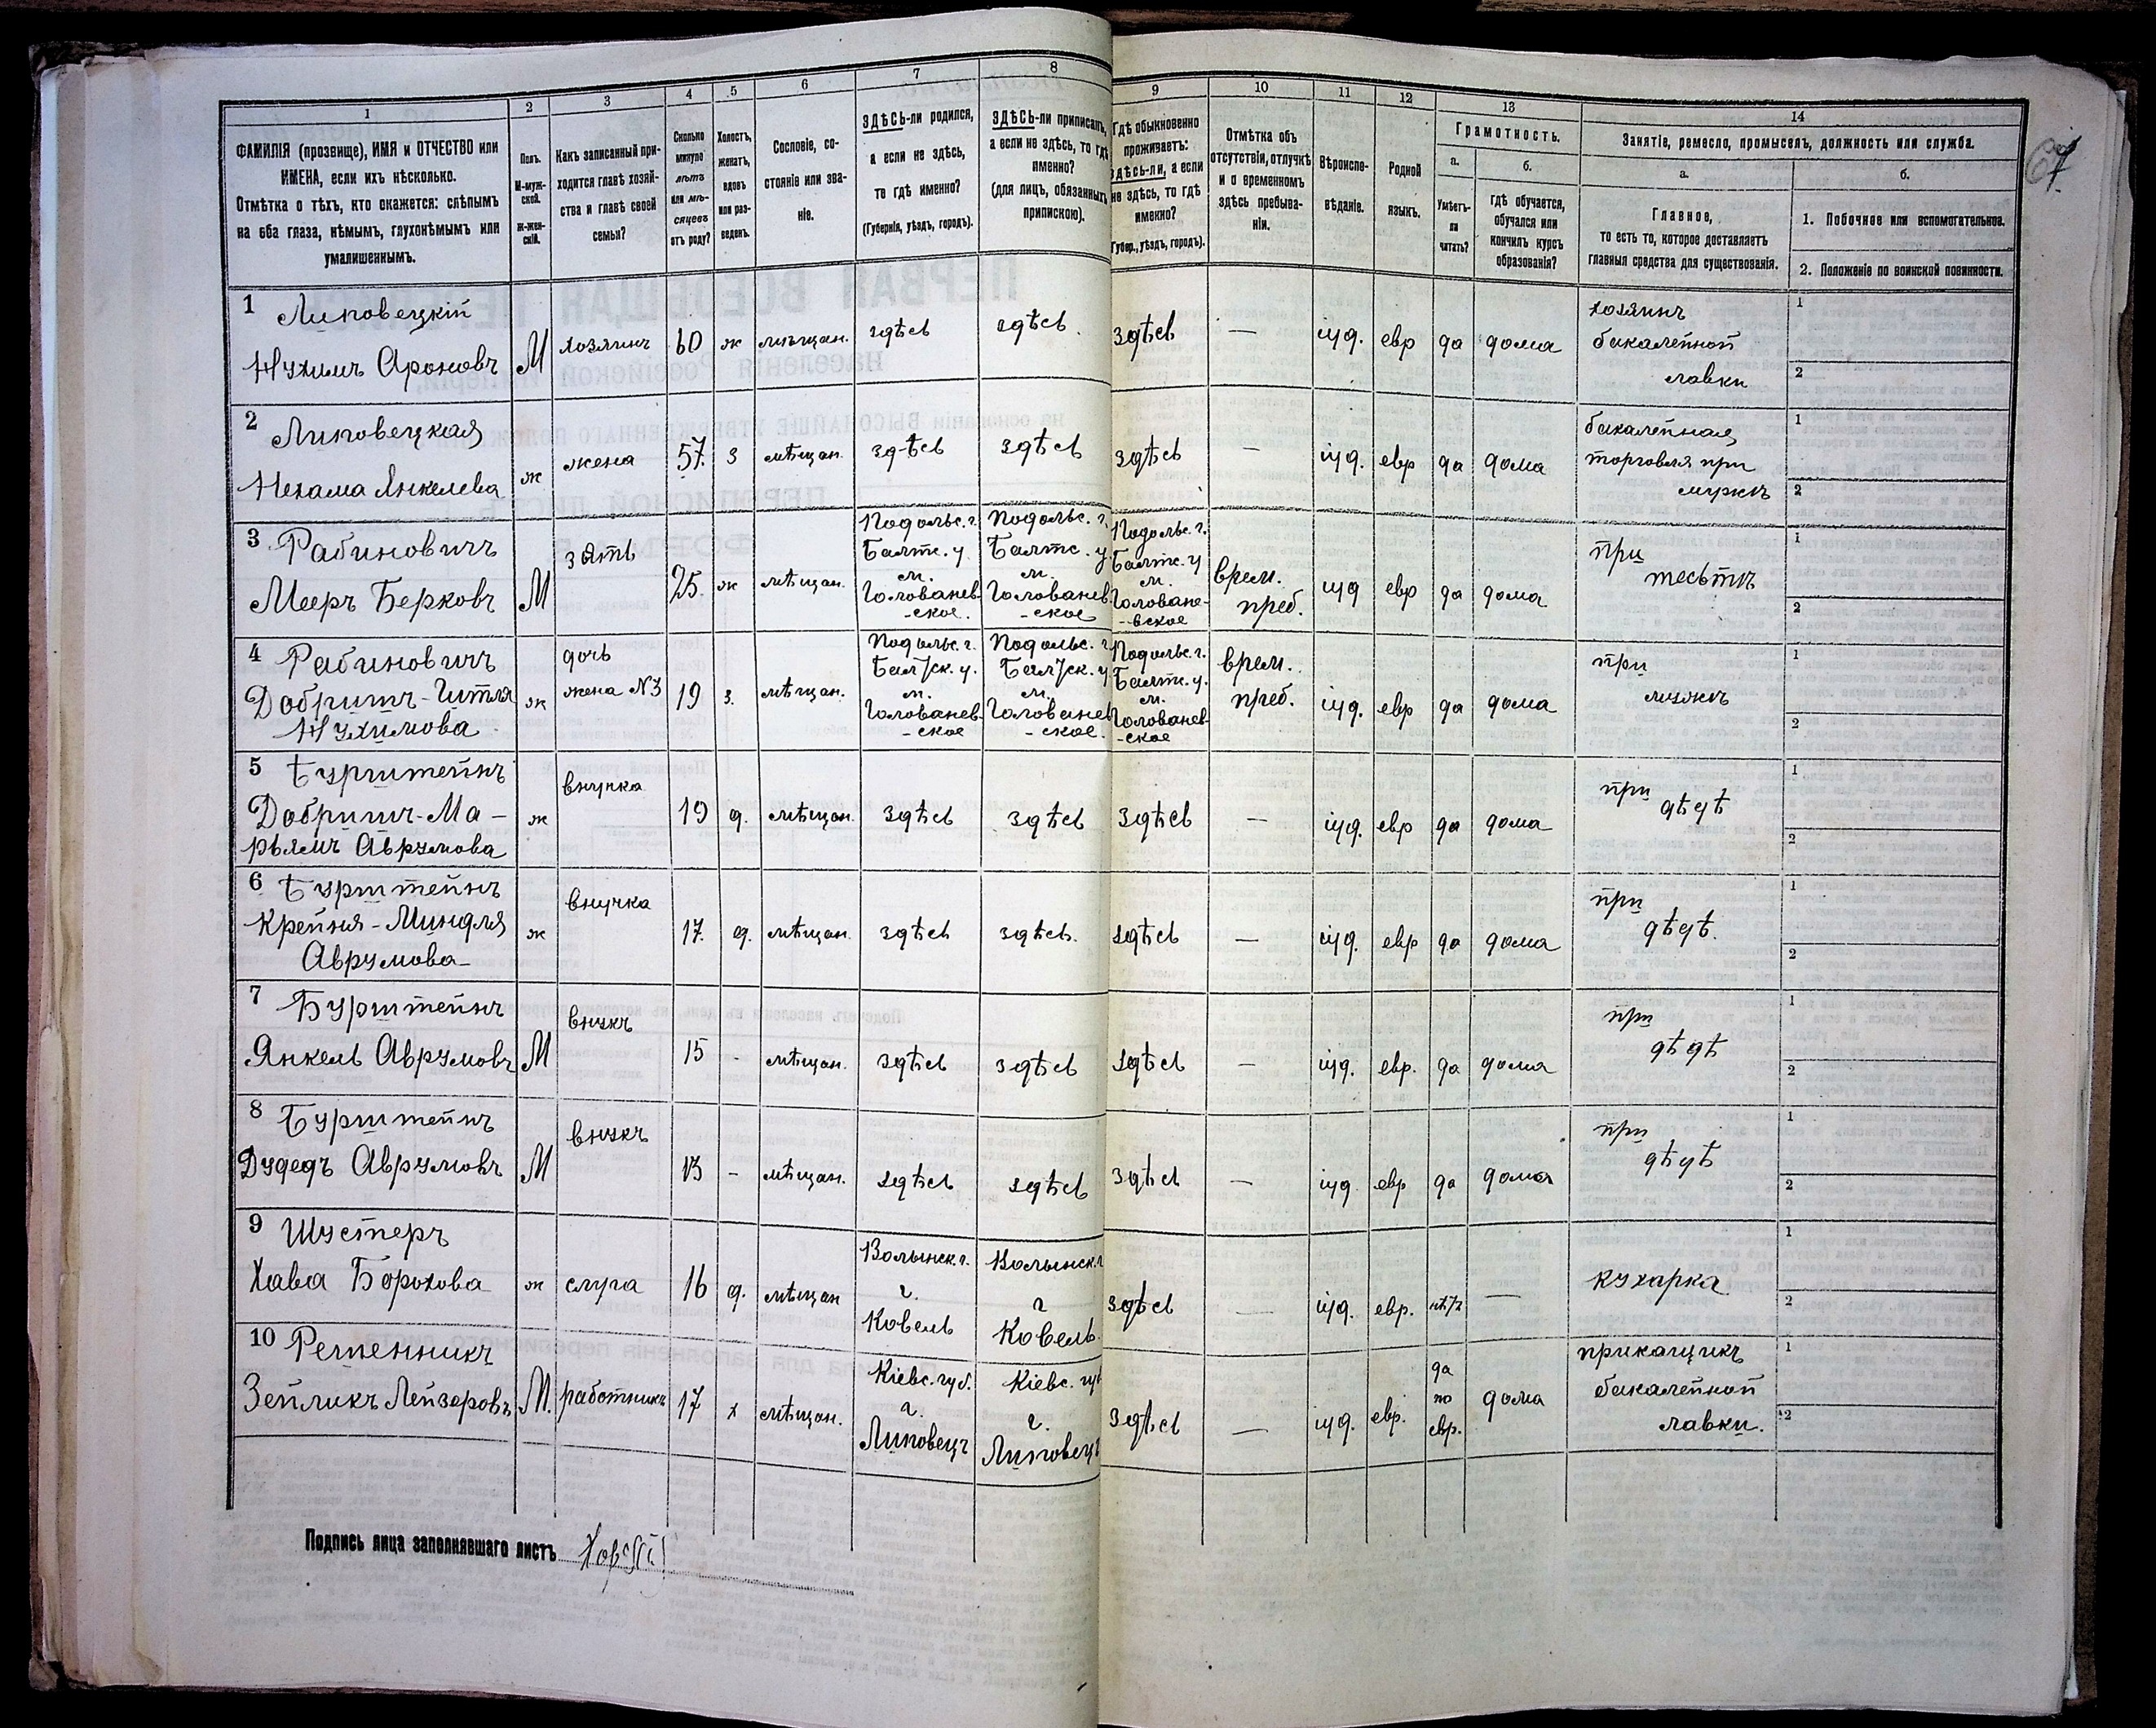 1 2 3 4 5 6 7 8 9 10 11 12 13 14
ФАМИЛІЯ (прозвище), ИМЯ и ОТЧЕСТВО или
ИМЕНА, если ихъ нѣсколько.
Отмѣтка о тѣхъ, кто окажется: слѣпымъ
на оба глаза, нѣмымъ, глухонѣмымъ или
умалишеннымъ.
Полъ.
М-муж-
ской.
Ж-жен-
скій.
Какъ записанный при-
ходится главѣ хозяй-
ства и главѣ своей
семьи?
Сколько
минуло
лѣтъ
или мѣ-
сяцевъ
отъ роду?
Холостъ,
женатъ,
вдовъ
или раз-
веденъ.
Сословіе, со-
стояніе или зва-
ніе.
ЗДѢСЬ-ли родился,
а если не здѣсь,
то гдѣ именно?
(Губернія, уѣздъ, городъ).
ЗДѢСЬ-ли приписанъ,
а если не здѣсь, то гдѣ
именно?
(для лицъ, обязанныхъ
припискою).
Гдѣ обыкновенно
проживаетъ:
здѣсь-ли, а если
не здѣсь, то гдѣ
именно?
(Губер., уѣздъ, городъ).
Отмѣтка объ
отсутствіи, отлучкѣ
и о временномъ
здѣсь пребыва-
ніи.
Вѣроиспо-
вѣданіе.
Родной
языкъ.
Грамотность.
а.
Умѣетъ-
ли
читать?
б.
Гдѣ обучается,
обучался или
кончилъ курсъ
образованія?
Занятіе, ремесло, промыселъ, должность или служба.
а.
Главное,
то есть то, которое доставляетъ
главныя средства для существованія.
б.
1. Побочное или вспомогательное.
2. Положеніе по воинской повинности.
67
1 Липовецкій
Нухимъ Ароновъ
М
хозяинъ
60
ж
мѣщан.
здѣсь
здѣсь.
здѣсь
—
іуд.
евр
да
дома
хозяинъ
бакалейной
лавки
1
2
2 Липовецкая
Нехама Янкелева
ж
жена
57.
з
мѣщан.
здѣсь
здѣсь
здѣсь
—
іуд.
евр
да
дома
бакалейная
торговля при
мужѣ
1
2
3 Рабиновичъ
Мееръ Берковъ
М
зять
25.
ж
мѣщан.
Подольс. г.
Балтс. у.
м.
Голованев-
-ское.
Подольс. г.
Балтс. у.
м.
Голованев
-ское
Подольс. г.
Балтс. у
м.
Головане-
-вское
врем.
преб.
іуд
евр
да
дома
при
тестѣ
1
2
4 Рабиновичъ
Добришъ-Гитля
Нухимова
ж
дочь
жена №3
19
з.
мѣщан.
Подольс. г.
Балтск. у.
м.
Голованев-
-ское
Подольс. г.
Балтск. у
м.
Голованев
-ское.
Подольс. г.
Балтс. у.
м.
Голованев-
-ское
врем.
преб.
іуд.
евр
да
дома
при
мужѣ
1
2
5 Бурштейнъ
Добришъ-Ма-
рьямъ Аврумова
ж
внучка
19
д.
мѣщан.
здѣсь
здѣсь
здѣсь
—
іуд.
евр
да
дома
при
дѣдѣ
1
2
6 Бурштейнъ
Крейня-Миндля
Аврумова-
ж
внучка
17.
д.
мѣщан.
здѣсь
здѣсь.
здѣсь
—
іуд.
евр
да
дома
при
дѣдѣ.
1
2
7 Бурштейнъ
Янкель Аврумовъ
М
внукъ
15
-
мѣщан.
здѣсь
здѣсь
здѣсь
—
іуд.
евр.
да
дома
при
дѣдѣ
1
2
8 Бурштейнъ
Дудедъ Аврумовъ
М
внукъ
13
-
мѣщан.
здѣсь
здѣсь
здѣсь
—
іуд
евр
да
дома
при
дѣдѣ
1
2
9 Шустеръ
Хава Борохова
ж
слуга
16
д.
мѣщан
Волынск. г.
г.
Ковель
Волынск. г
г
Ковель.
здѣсь
—
іуд.
евр.
нѣтъ
—
кухарка
1
2
10 Решенникъ
Зейликъ Лейзеровъ
М.
работникъ
17
х
мѣщан.
Кіевс. губ.
г.
Липовецъ
Кіевс. губ
г.
Липовецъ
здѣсь
—
іуд.
евр.
да
по
евр.
дома
прикащикъ
бакалейной
лавки.
1
2
Подпись лица заполнявшаго листъ